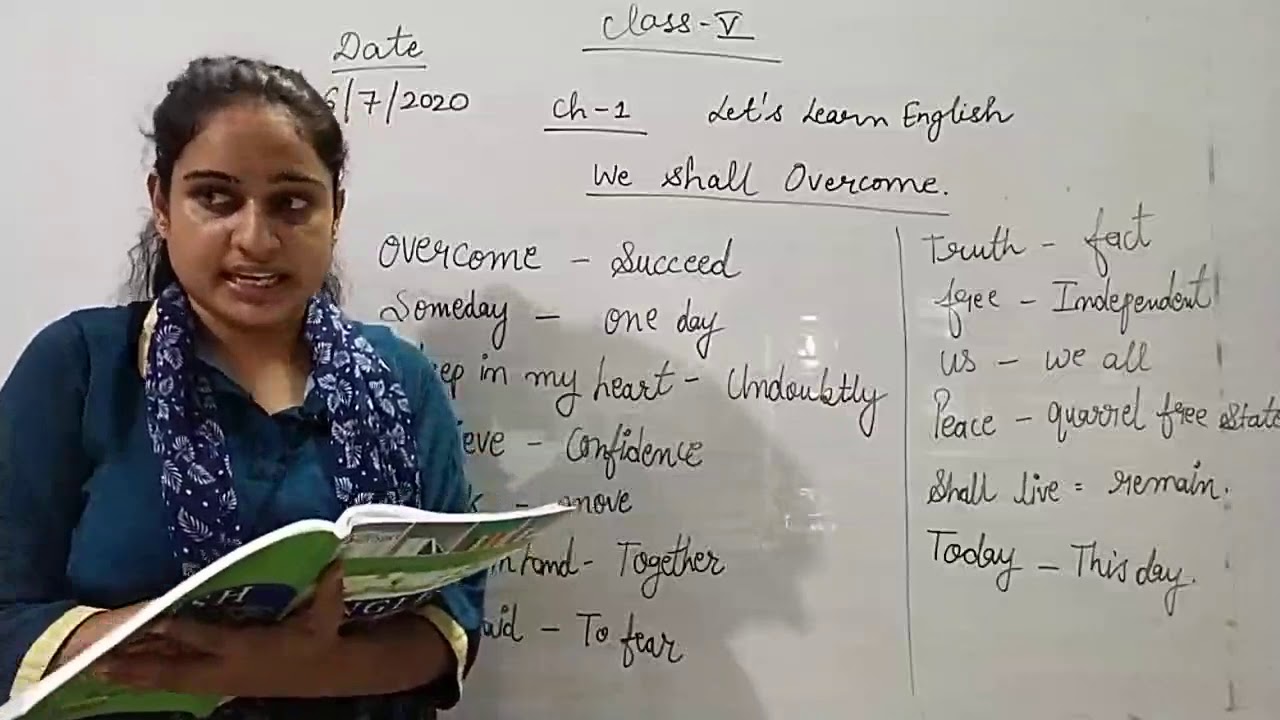 Class - V
Date
6/7/2020
Ch-1 Let's Learn English
We Shall Overcome.
Overcome - Succeed
Someday - one day
in my heart - Undoubtly
- Confidence
- move
- Together
- To fear
Truth - fact
free - Independent
us - we all
Peace - quarrel free State
Shall live = remain.
Today - This day.